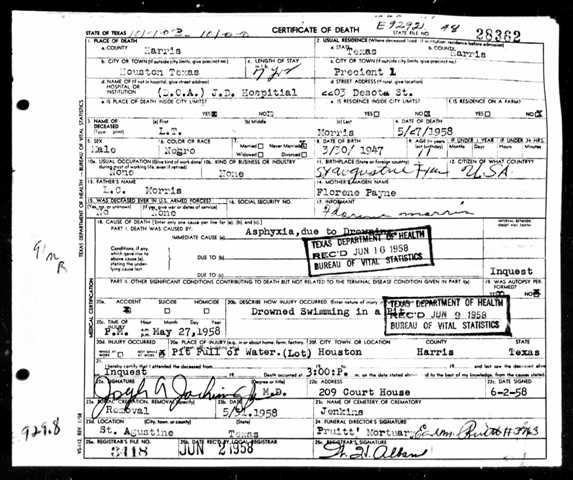 STATE OF TEXAS
CERTIFICATE OF DEATH
STATE FILE NO. 28362
E92921
48
1. PLACE OF DEATH
a. COUNTY
Harris
2. USUAL RESIDENCE (Where deceased lived. If institution: residence before admission)
a. STATE
Texas
b. COUNTY
Harris
b. CITY OR TOWN (If outside city limits, give precinct no.)
Houston Texas
c. LENGTH OF STAY
c. CITY OR TOWN (If outside city limits, give precinct no.)
Precient 1
d. NAME OF (If not in hospital, give street address)
HOSPITAL OR
INSTITUTION
(D.O.A.) J.D. Hospitial
d. STREET ADDRESS (If rural, give location)
2203 Desota St.
e. IS PLACE OF DEATH INSIDE CITY LIMITS?
YES NO
e. IS RESIDENCE INSIDE CITY LIMITS?
YES NO
f. IS RESIDENCE ON A FARM?
YES NO
3. NAME OF
DECEASED
(Type or print)
(a) First
L.T.
(b) Middle
(c) Last
Morris
4. DATE OF DEATH
5/27/1958
5. SEX
Male
6. COLOR OR RACE
Negro
7. Married Never Married
Widowed Divorced
8. DATE OF BIRTH
3/30/1947
9. AGE (In years last birthday)
11
IF UNDER 1 YEAR
Months Days
IF UNDER 24 HRS.
Hours Min.
10a. USUAL OCCUPATION (Give kind of work done during most of working life, even if retired)
None
10b. KIND OF BUSINESS OR INDUSTRY
None
11. BIRTHPLACE (State or foreign country)
12. CITIZEN OF WHAT COUNTRY?
U.S.A.
13. FATHER'S NAME
L.C. Morris
14. MOTHER'S MAIDEN NAME
Florene Payne
15. WAS DECEASED EVER IN U.S. ARMED FORCES?
(Yes, no, or unknown) (If yes, give war or dates of service)
No None
16. SOCIAL SECURITY NO.
17. INFORMANT
18. CAUSE OF DEATH (Enter only one cause per line for (a), (b), and (c).)
PART I. DEATH WAS CAUSED BY:
IMMEDIATE CAUSE (a)
Asphyxia, due to Drowning
INTERVAL BETWEEN
ONSET AND DEATH
Conditions, if any,
which gave rise to
above cause (a),
stating the under-
lying cause last.
DUE TO (b)
DUE TO (c)
TEXAS DEPARTMENT OF HEALTH
REC'D JUN 16 1958
BUREAU OF VITAL STATISTICS
Inquest
PART II. OTHER SIGNIFICANT CONDITIONS CONTRIBUTING TO DEATH BUT NOT RELATED TO THE TERMINAL DISEASE CONDITION GIVEN IN PART I(a)
19. WAS AUTOPSY PERFORMED?
YES NO
20a. ACCIDENT SUICIDE HOMICIDE
20b. DESCRIBE HOW INJURY OCCURRED.
Drowned Swimming in a Pit
TEXAS DEPARTMENT OF HEALTH
REC'D JUN 9 1958
BUREAU OF VITAL STATISTICS
20c. TIME OF INJURY
Hour Month Day Year
P.M. May 27,1958
20d. INJURY OCCURRED
WHILE AT WORK NOT WHILE AT WORK
20e. PLACE OF INJURY
Pit Full of Water.(Lot)
20f. CITY, TOWN, OR LOCATION COUNTY STATE
Houston Harris Texas
21. I hereby certify that I attended the deceased from
Inquest
Death occurred at 3:00:P. m. on the date stated above; and to the best of my knowledge, from the causes stated.
22a. SIGNATURE
(Degree or title)
M.D.
22b. ADDRESS
209 Court House
22c. DATE SIGNED
6-2-58
23a. BURIAL, CREMATION, REMOVAL (Specify)
Removal
23b. DATE
1958
23c. NAME OF CEMETERY OR CREMATORY
Jenkins
23d. LOCATION (City, town, or county) (State)
St. Agustine Texas
24. FUNERAL DIRECTOR'S SIGNATURE
Pruitt' Mortuary
25a. REGISTRAR'S FILE NO.
3418
25b. DATE REC'D BY LOCAL REGISTRAR
JUN 2 1958
25c. REGISTRAR'S SIGNATURE
929.8
TEXAS DEPARTMENT OF HEALTH - BUREAU OF VITAL STATISTICS
MEDICAL CERTIFICATION
VS-112 REV. 1/58